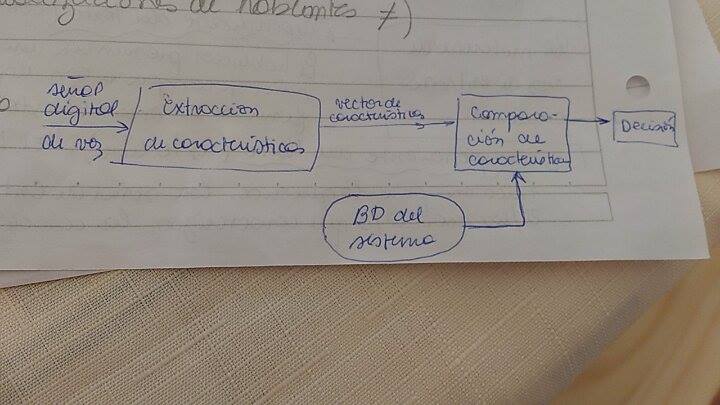 de hablantes ≠)
señal
digital
de voz
Extracción
de características
vector de
características
Compara-
ción de
característica
Decisión
BD del
sistema